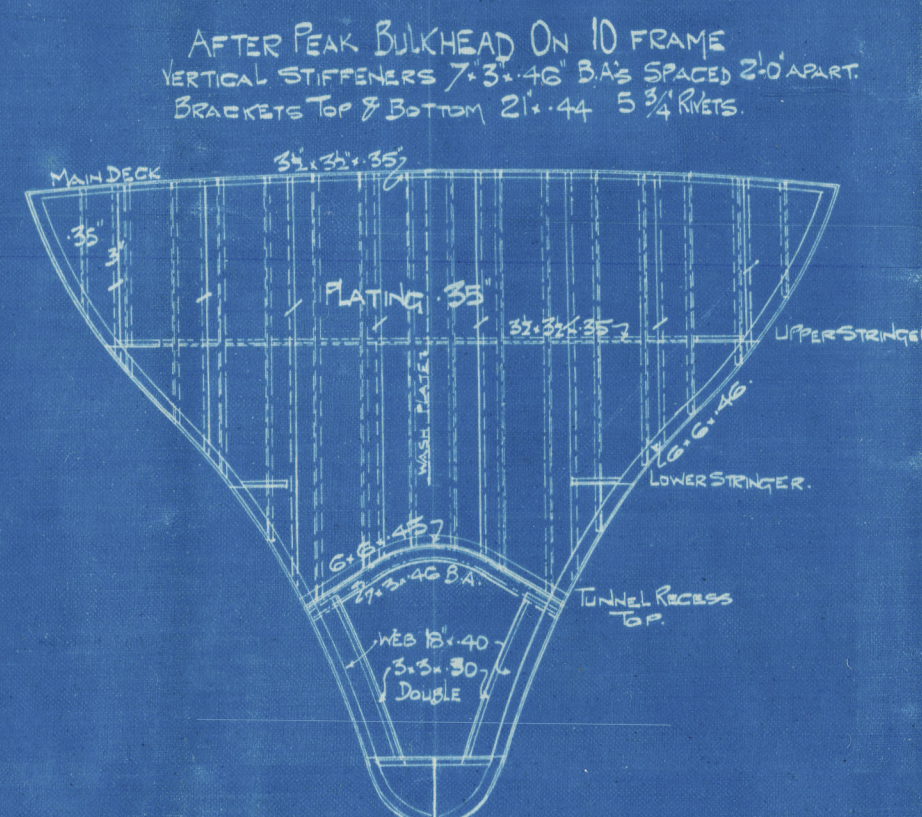 AFTER PEAK BULKHEAD ON 10 FRAME
VERTICAL STIFFENERS 7"×3"×.46" B.A's SPACED 2'-0" APART.
BRACKETS TOP & BOTTOM 21"×.44 5 3/4" RIVETS.
MAIN DECK
3½"×3½"×.35"
.35"
3"
PLATING .35"
3½×3½×.35"
UPPER STRINGE
WASH PLATE
6×6×.46
LOWER STRINGER.
6×6×.45
7×3×.46 B.A.
TUNNEL RECESS
TOP.
WEB 18"×.40
3×3×.30
DOUBLE